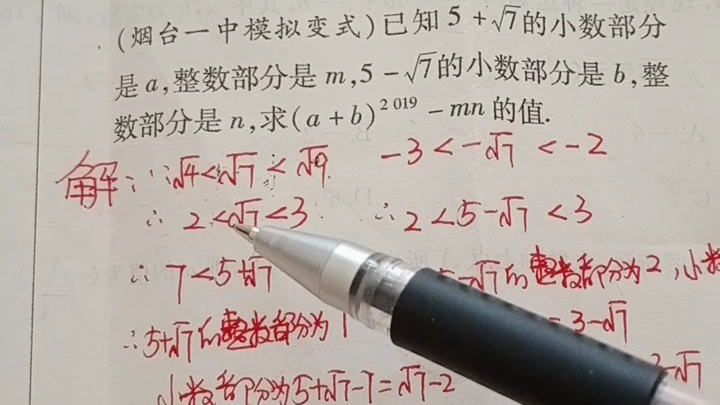 (烟台一中模拟变式)已知5+√7的小数部分
是a,整数部分是m,5-√7的小数部分是b,整
数部分是n,求(a+b)²⁰¹⁹-mn的值.
解:∵√4<√7<√9 -3<-√7<-2
∴2<√7<3 ∴2<5-√7<3
∴7<5+√7 5-√7的整数部分为2,小数
∴5+√7的整数部分为 =3-√7
小数部分为5+√7-7=√7-2 3-√7